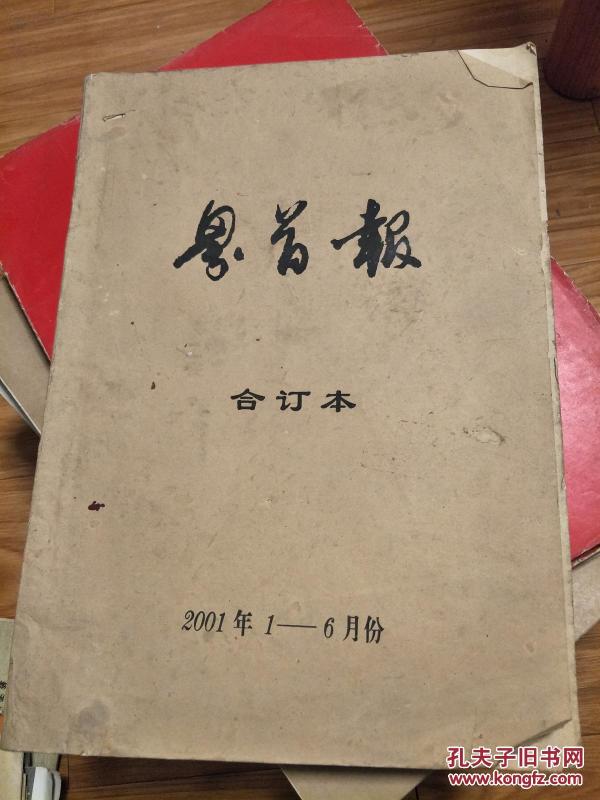 界首報
合订本
2001年1—6月份
孔夫子旧书网
www.kongfz.com